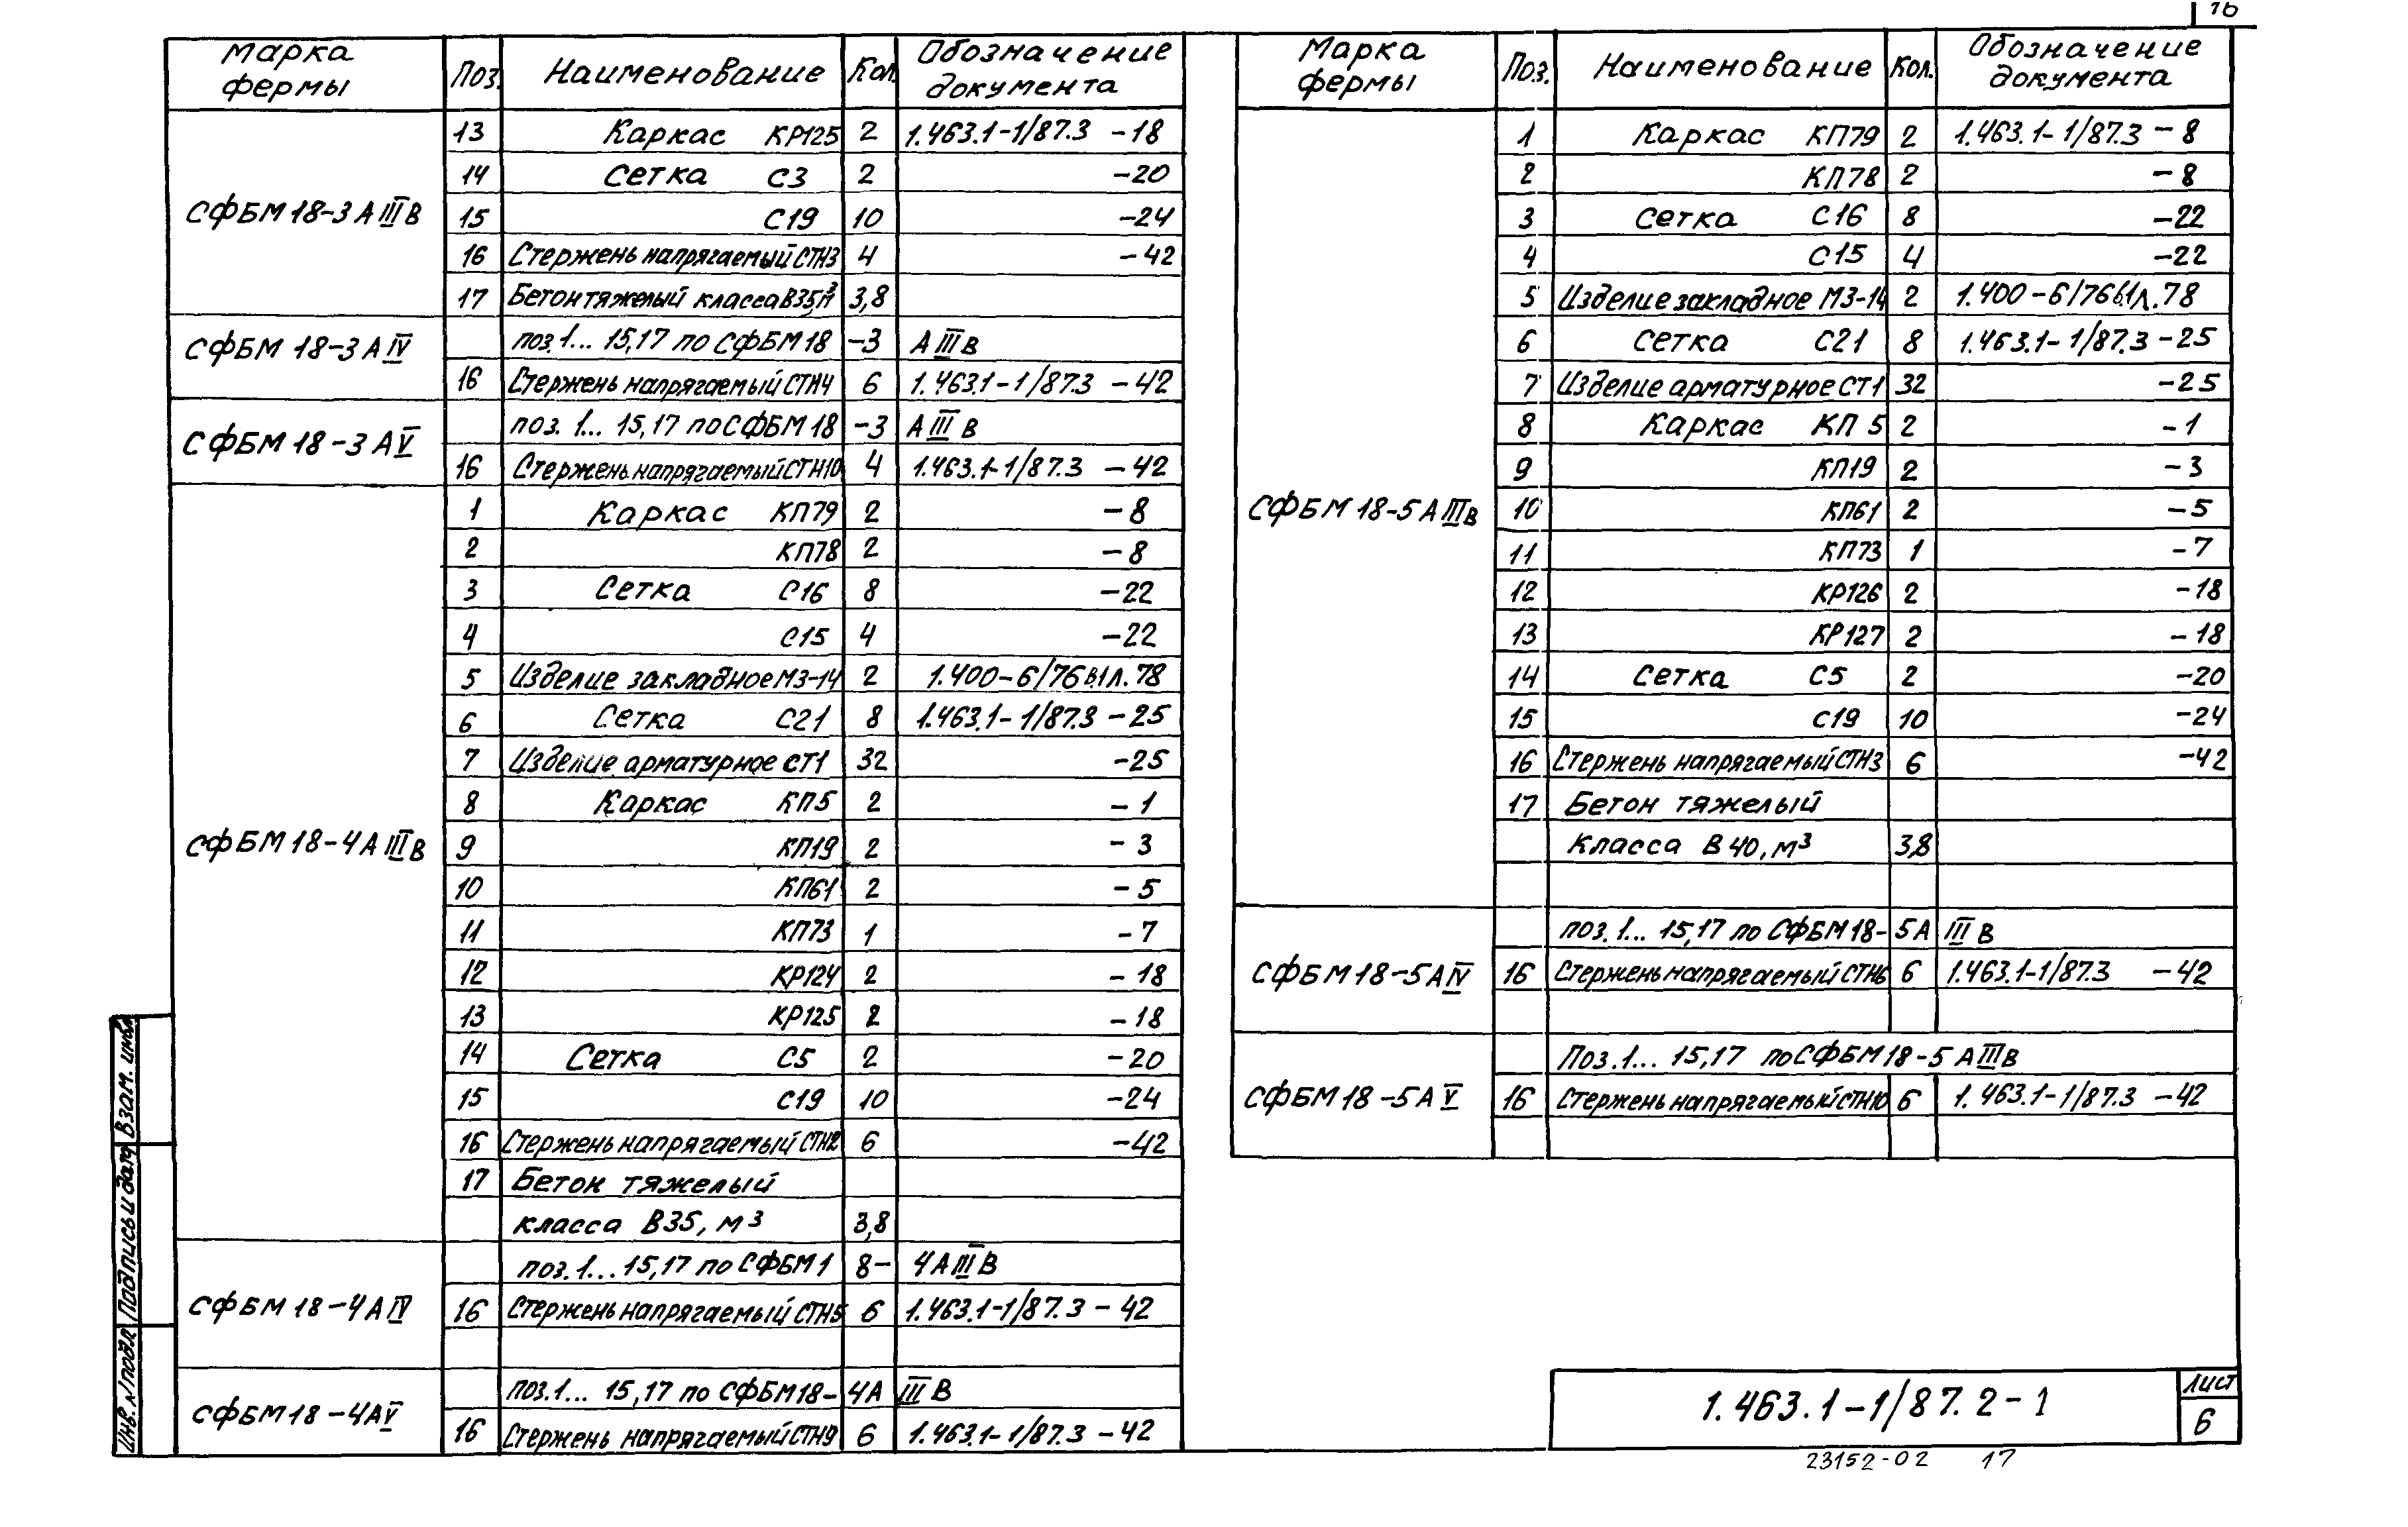 16
Марка фермы Поз. Наименование Кол. Обозначение документа
13 Каркас КР125 2 1.463.1-1/87.3 -18
14 Сетка С3 2 -20
СФБМ 18-3 А III В
15 С19 10 -24
16 Стержень напрягаемый СТН3 4 -42
17 Бетон тяжелый класса В35, м³ 3,8
СФБМ 18-3 А IV
поз. 1... 15,17 по СФБМ 18 -3 А III В
16 Стержень напрягаемый СТН4 6 1.463.1-1/87.3 -42
СФБМ 18-3 А V
поз. 1... 15,17 по СФБМ 18 -3 А III В
16 Стержень напрягаемый СТН10 4 1.463.1-1/87.3 -42
1 Каркас КП79 2 -8
2 КП78 2 -8
3 Сетка С16 8 -22
4 С15 4 -22
5 Изделие закладное МЗ-14 2 1.400-6/76 в.1 л. 78
6 Сетка С21 8 1.463.1-1/87.3 -25
7 Изделие арматурное СТ1 32 -25
8 Каркас КП5 2 -1
СФБМ 18-4 А III В
9 КП19 2 -3
10 КП61 2 -5
11 КП73 1 -7
12 КР124 2 -18
13 КР125 2 -18
14 Сетка С5 2 -20
15 С19 10 -24
16 Стержень напрягаемый СТН2 6 -42
17 Бетон тяжелый
класса В35, м³ 3,8
поз. 1... 15,17 по СФБМ 1 8- 4А III В
СФБМ 18-4 А IV
16 Стержень напрягаемый СТН5 6 1.463.1-1/87.3 -42
поз. 1... 15,17 по СФБМ 18- 4А III В
СФБМ 18-4А V
16 Стержень напрягаемый СТН9 6 1.463.1-1/87.3 -42
Марка фермы Поз. Наименование Кол. Обозначение документа
1 Каркас КП79 2 1.463.1-1/87.3 -8
2 КП78 2 -8
3 Сетка С16 8 -22
4 С15 4 -22
5 Изделие закладное МЗ-14 2 1.400-6/76 в.1 л. 78
6 Сетка С21 8 1.463.1-1/87.3 -25
7 Изделие арматурное СТ1 32 -25
8 Каркас КП 5 2 -1
9 КП19 2 -3
СФБМ 18-5 А III В
10 КП61 2 -5
11 КП73 1 -7
12 КР126 2 -18
13 КР127 2 -18
14 Сетка С5 2 -20
15 С19 10 -24
16 Стержень напрягаемый СТН3 6 -42
17 Бетон тяжелый
класса В 40, м³ 3,8
поз. 1... 15,17 по СФБМ 18- 5А III В
СФБМ 18-5 А IV
16 Стержень напрягаемый СТН6 6 1.463.1-1/87.3 -42
Поз. 1... 15,17 по СФБМ 18-5 А III В
СФБМ 18-5 А V
16 Стержень напрягаемый СТН10 6 1.463.1-1/87.3 -42
Взам. инв.
Подпись и дата
Инв. № подл.
1.463.1-1/87.2-1
Лист
6
23152-02 17